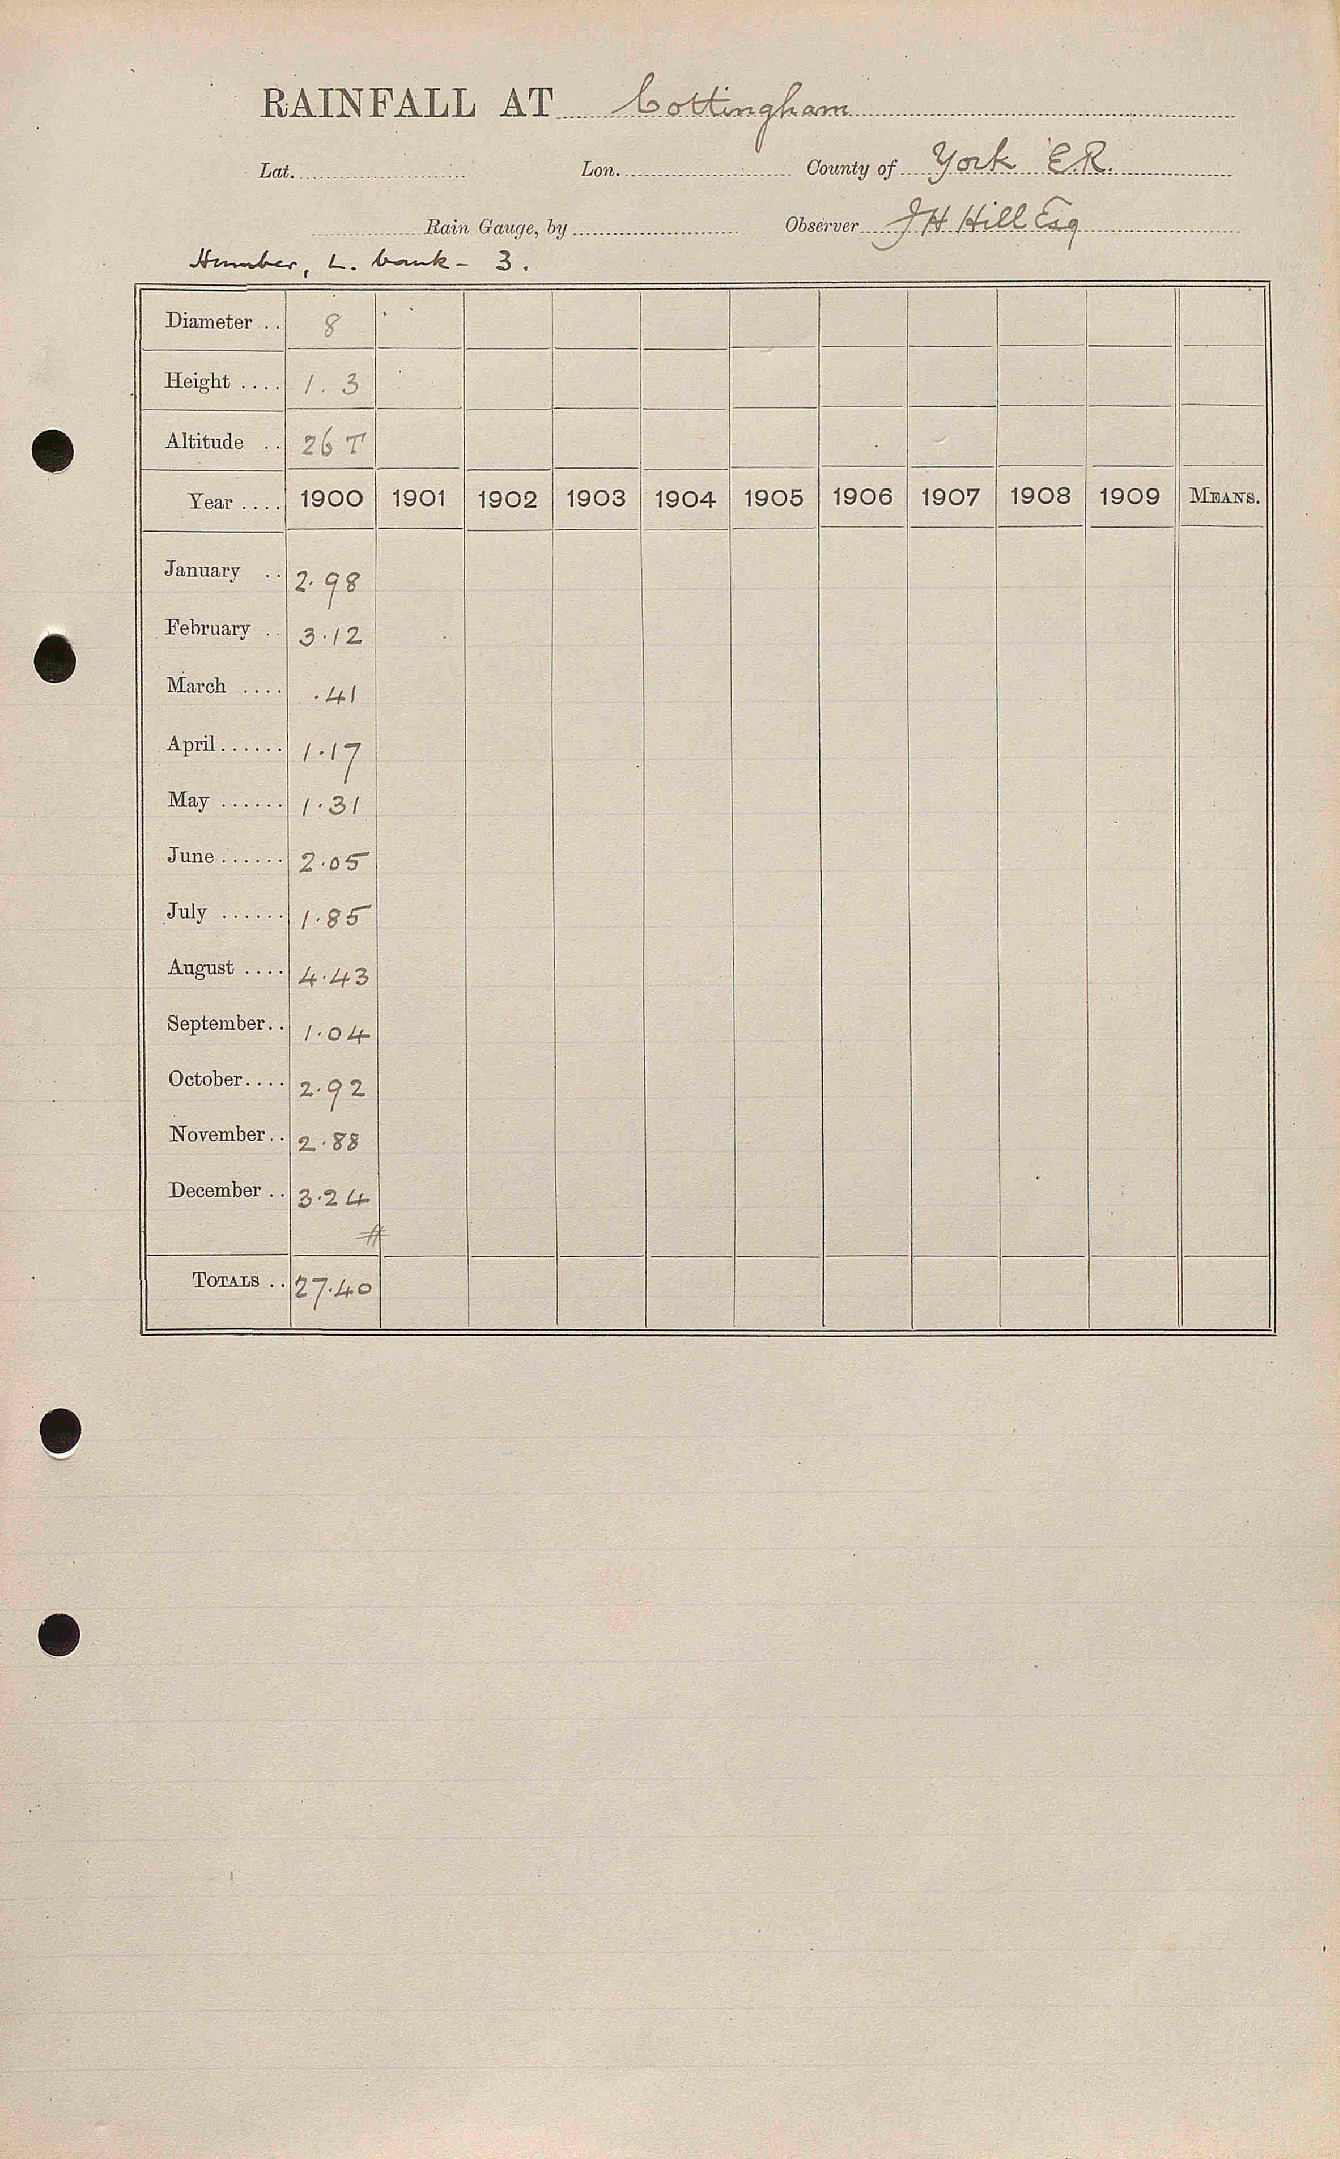 RAINFALL AT Cottingham
Lat. Lon. County of York E.R.
Rain Gauge, by Observer J H Hill Esq
Humber, L. bank - 3.
Diameter .. 8
Height .... 1. 3
Altitude .. 26 T
Year .... 1900 1901 1902 1903 1904 1905 1906 1907 1908 1909 MEANS.
January .. 2.98
February .. 3.12
March .... .41
April...... 1.17
May ...... 1.31
June ...... 2.05
July ...... 1.85
August .... 4.43
September.. 1.04
October.... 2.92
November.. 2.88
December .. 3.24
#
TOTALS .. 27.40